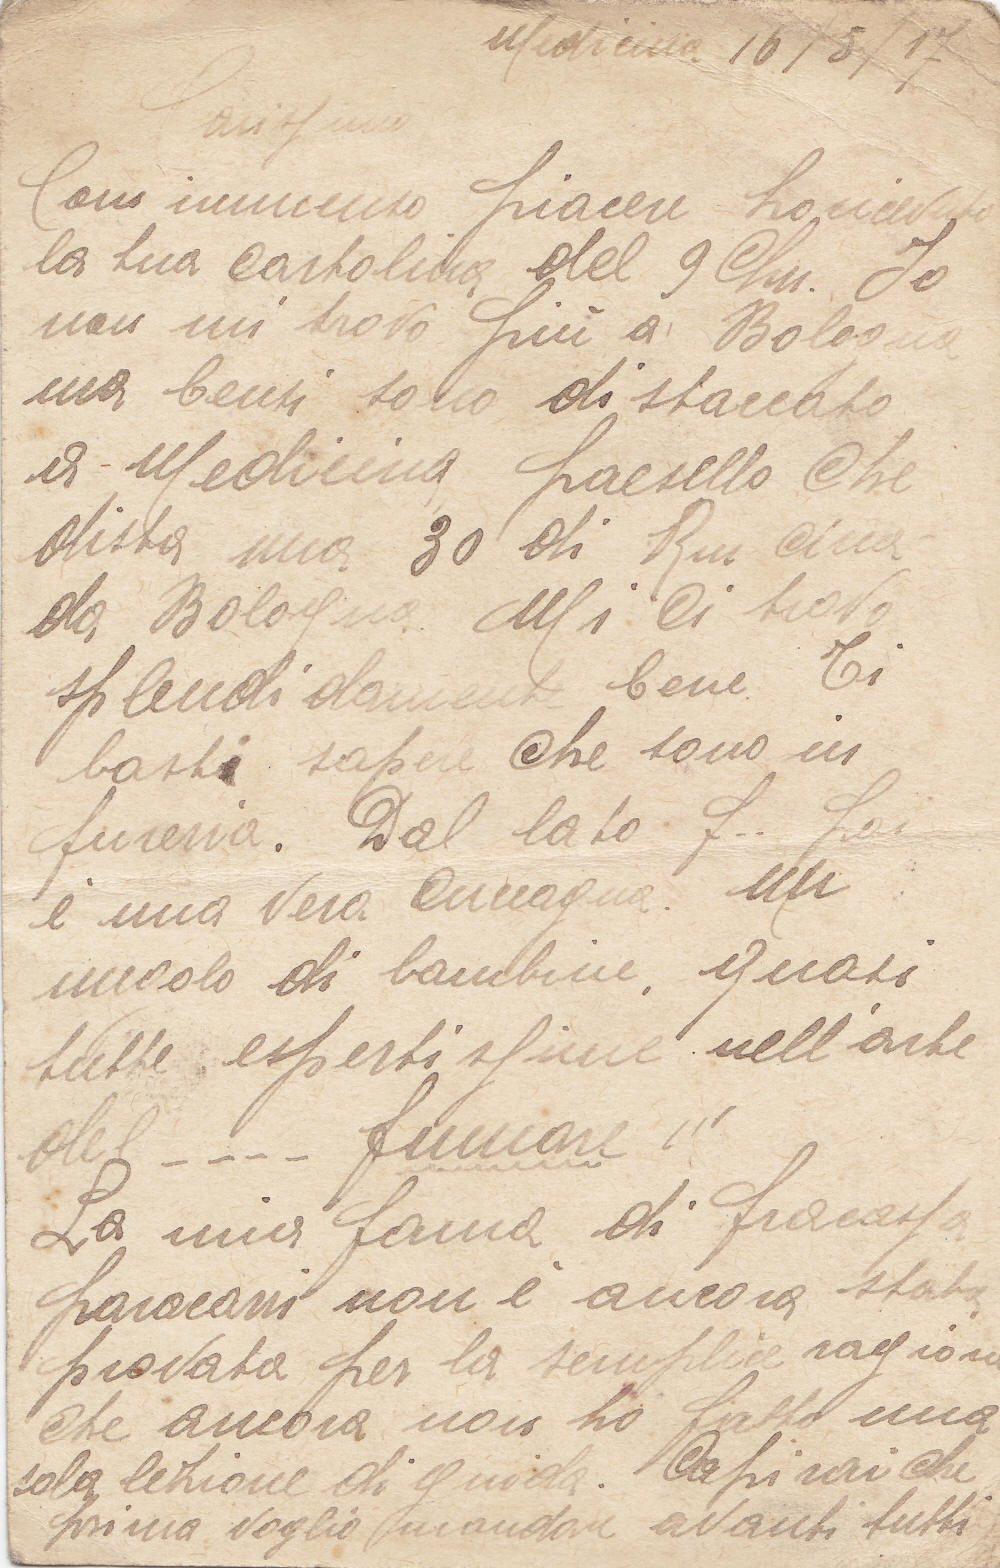 Medicina 16/5/17
Carissimo
Con immenso piacere ho ricevuto
la tua cartolina del 9 Chr. Io
non mi trovo più a Bologna
ma bensi sono distaccato
a Medicina paesello che
dista una 30 di Km circa
da Bologna. Mi ci trovo
splendidamente bene. Ti
basti sapere che sono in
fureria. Dal lato f.. poi
è una vera cuccagna. Un
nucolo di bambine, quasi
tutte espertissime nell'arte
del ---- fumare "
La mia fama di fracassa
paracarri non è ancora stata
provata per la semplice ragione
che ancora non ho fatto una
sola lezione di guida. Capirai che
prima voglio mandare avanti tutti